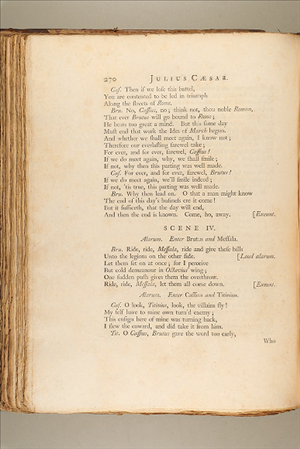 270 JULIUS CÆSAR.
Caſ. Then if we loſe this battel,
You are contented to be led in triumph
Along the ſtreets of Rome.
Bru. No, Caſſius, no; think not, thou noble Roman,
That ever Brutus will go bound to Rome;
He bears too great a mind. But this ſame day
Muſt end that work the Ides of March begun.
And whether we ſhall meet again, I know not;
Therefore our everlaſting farewel take;
For ever, and for ever, farewel, Caſſius!
If we do meet again, why, we ſhall ſmile;
If not, why then this parting was well made.
Caſ. For ever, and for ever, farewel, Brutus!
If we do meet again, we'll ſmile indeed;
If not, 'tis true, this parting was well made.
Bru. Why then lead on. O that a man might know
The end of this day's buſineſs ere it come!
But it ſufficeth, that the day will end,
And then the end is known. Come, ho, away. [Exeunt.
SCENE IV.
Alarum. Enter Brutus and Meſſala.
Bru. Ride, ride, Meſſala, ride and give theſe bills
Unto the legions on the other ſide. [Loud alarum.
Let them ſet on at once; for I perceive
But cold demeanour in Octavius' wing;
One ſudden puſh gives them the overthrow.
Ride, ride, Meſſala, let them all come down. [Exeunt.
Alarum. Enter Caſſius and Titinius.
Caſ. O look, Titinius, look, the villains fly!
My ſelf have to mine own turn'd enemy;
This enſign here of mine was turning back,
I ſlew the coward, and did take it from him.
Tit. O Caſſius, Brutus gave the word too early,
Who